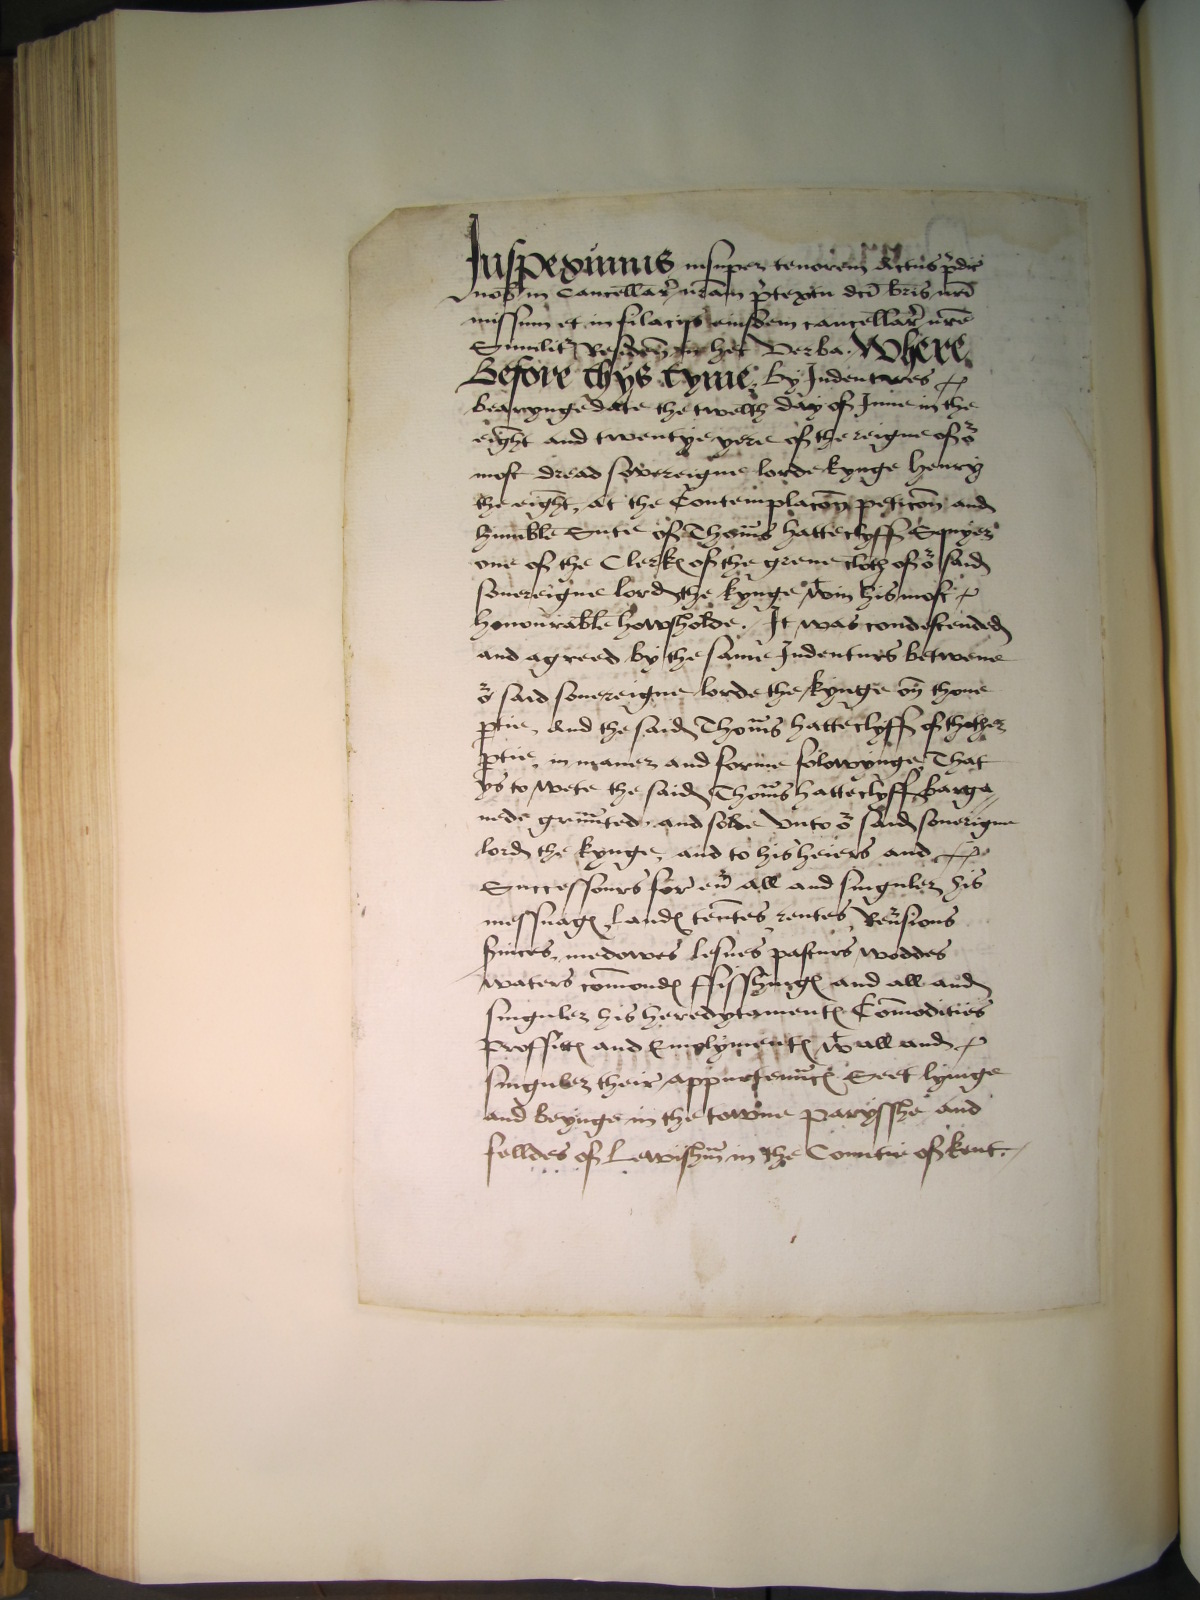 Inspeximus insuper tenorem actus p̃dic̃
nob̃ in Cancellar̃ nr̃am p̃textu dc̃i br̃is nr̃i
missum et in filacijs eiusdem cancellar̃ nr̃e
Similit̃ Residen̄ in hec Verba. Where
Before thys tyme, by Indentures
bearynge date the twelth day of June in the
eight and twentye yere of the reigne of or̃
most dread sovereigne lorde kynge henry
the eight, at the Contemplacōn peticōn and
humble Sute of Thom̃s hatteclyff Squyer
one of the Clerkꝭ of the grene cloth of or̃ said
souereigne lord the kynge wt̃in his most
honourable howsholde. It was condescended
and agreed by the same Indenturs betwene
or̃ said souereigne lorde the kynge on thone
ꝑtie, and the said Thom̃s hatteclyff of thother
ꝑtie, in maner and forme folowynge That
ys to wete the said Thom̃s hatteclyff barga
nede grũnted and solde vnto or̃ said souerigne
lord the kynge, and to his heiers and
Successours for eũ all and singuler his
messuagꝭ landꝭ ten̄tes rentes Reũsions
ſuices, medowes lesues pasturs woddes
waters com̄ondꝭ ffisshingꝭ and all and
singuler his heredytamentꝭ Com̄odities
proffittꝭ and Emolymentꝭ wt̃ all and
singuler their appurtenũcꝭ Seet lyinge
and beynge in the towne paryssħe and
felldes of Lewishm̃ in the Countie of kent.